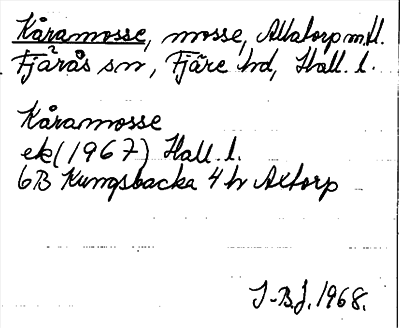 Kåramosse, mosse, Allatorp m.fl.
Fjärås sn, Fjäre hd, Hall. l.
Kåramosse
ek (1967) Hall. l.
6B Kungsbacka 4h Axtorp
J-B.J. 1968.